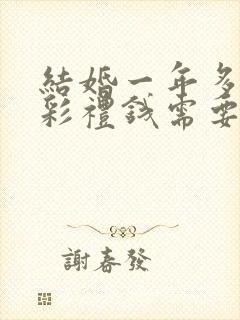 結婚一年多
彩禮錢需要
謝春發